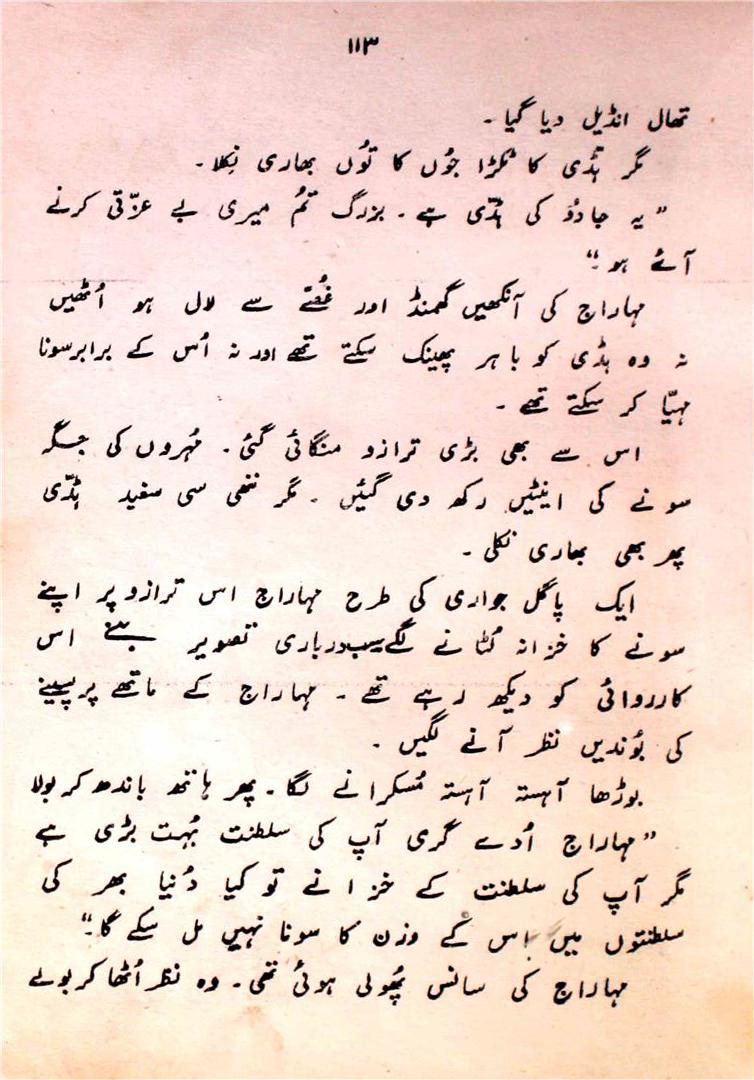 ۱۱۳
تھال انڈیل دیا گیا۔
مگر ہڈی کا ٹکڑا جوُں کا توُں بھاری نِکلا۔
”یہ جادوُ کی ہڈّی ہے۔ بزرگ تمُ میری بے عزّتی کرنے
آئے ہو۔“
مہاراج کی آنکھیں گھمنڈ اور غُصّے سے لال ہو اُٹھیں
نہ وہ ہڈی کو باہر پھینک سکتے تھے اور نہ اُس کے برابر سونا
مہیّا کر سکتے تھے۔
اس سے بھی بڑی ترازو منگائی گئی۔ مُہروں کی جگہ
سونے کی اینٹیں رکھ دی گئیں۔ مگر ننھی سی سفید ہڈّی
پھر بھی بھاری نکلی۔
ایک پاگل جواری کی طرح مہاراج اس ترازو پر اپنے
سونے کا خزانہ لُٹانے لگے سب درباری تصویر بنے اس
کارروائی کو دیکھ رہے تھے۔ مہاراج کے ماتھے پر پسینے
کی بوُندیں نظر آنے لگیں۔
بوڑھا آہستہ آہستہ مُسکرانے لگا۔ پھر ہاتھ باندھ کر بولا
”مہاراج اُدے گری آپ کی سلطنت بُہت بڑی ہے
مگر آپ کی سلطنت کے خزانے تو کیا دُنیا بھر کی
سلطنتوں میں اس کے وزن کا سونا نہیں مل سکے گا۔“
مہاراج کی سانس پھُولی ہوئی تھی۔ وہ نظر اُٹھا کر بولے